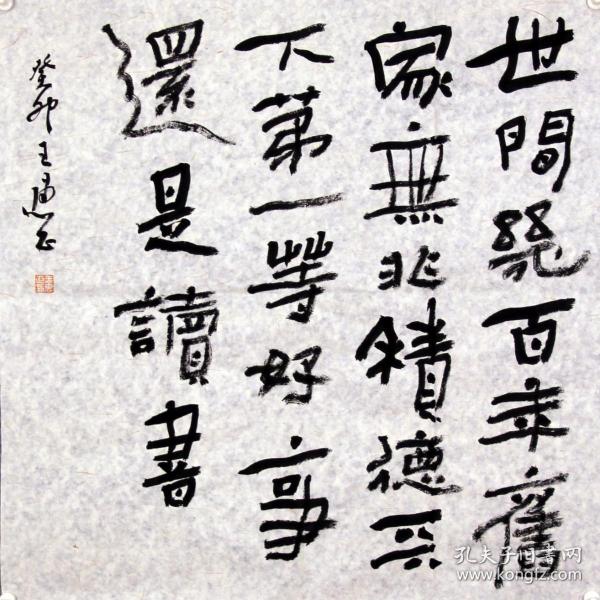 世間幾百年舊
家無非積德天
下第一等好事
還是讀書
癸卯王
孔夫子旧书网
www.kongfz.com